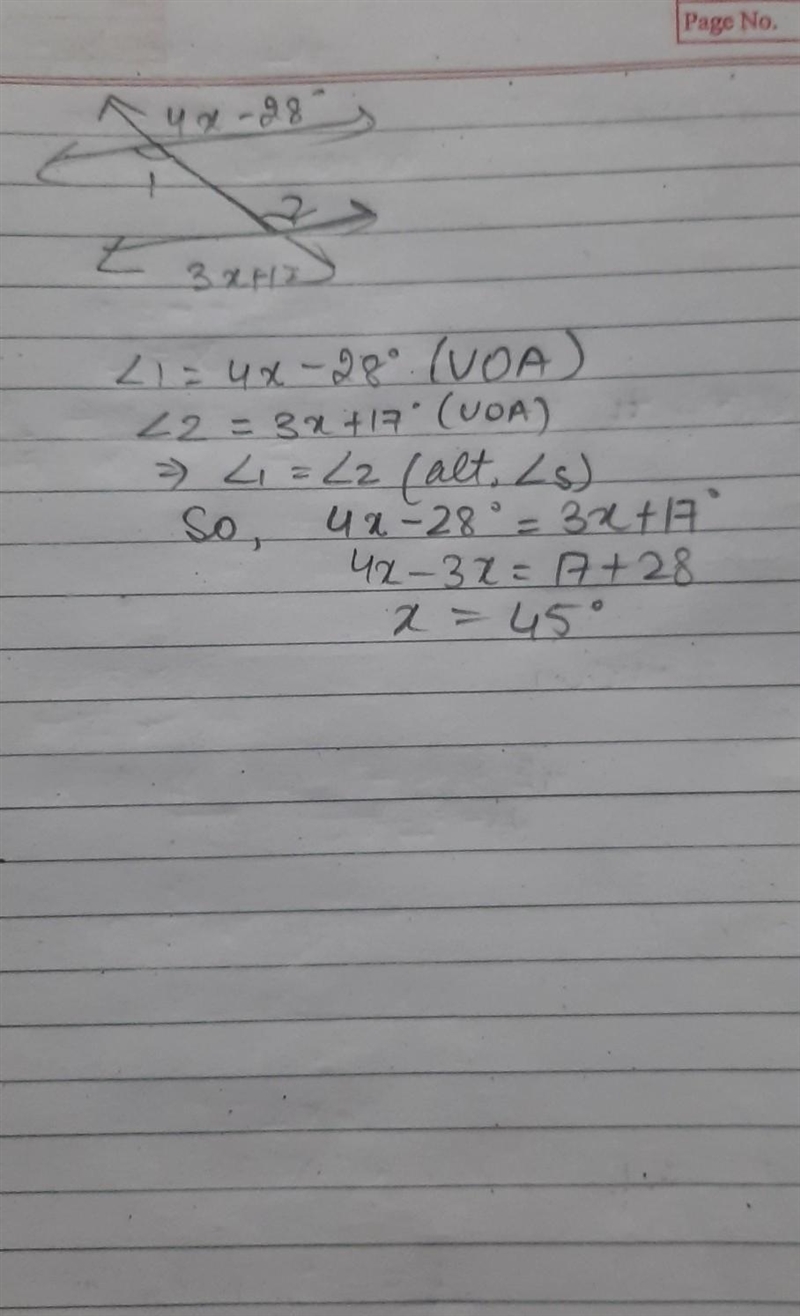 Page No.
4x-28°
1
2
3x+17
∠1 = 4x-28° (VOA)
∠2 = 3x+17° (VOA)
⇒ ∠1 = ∠2 (alt. ∠s)
So, 4x-28° = 3x+17°
4x-3x = 17+28
x = 45°